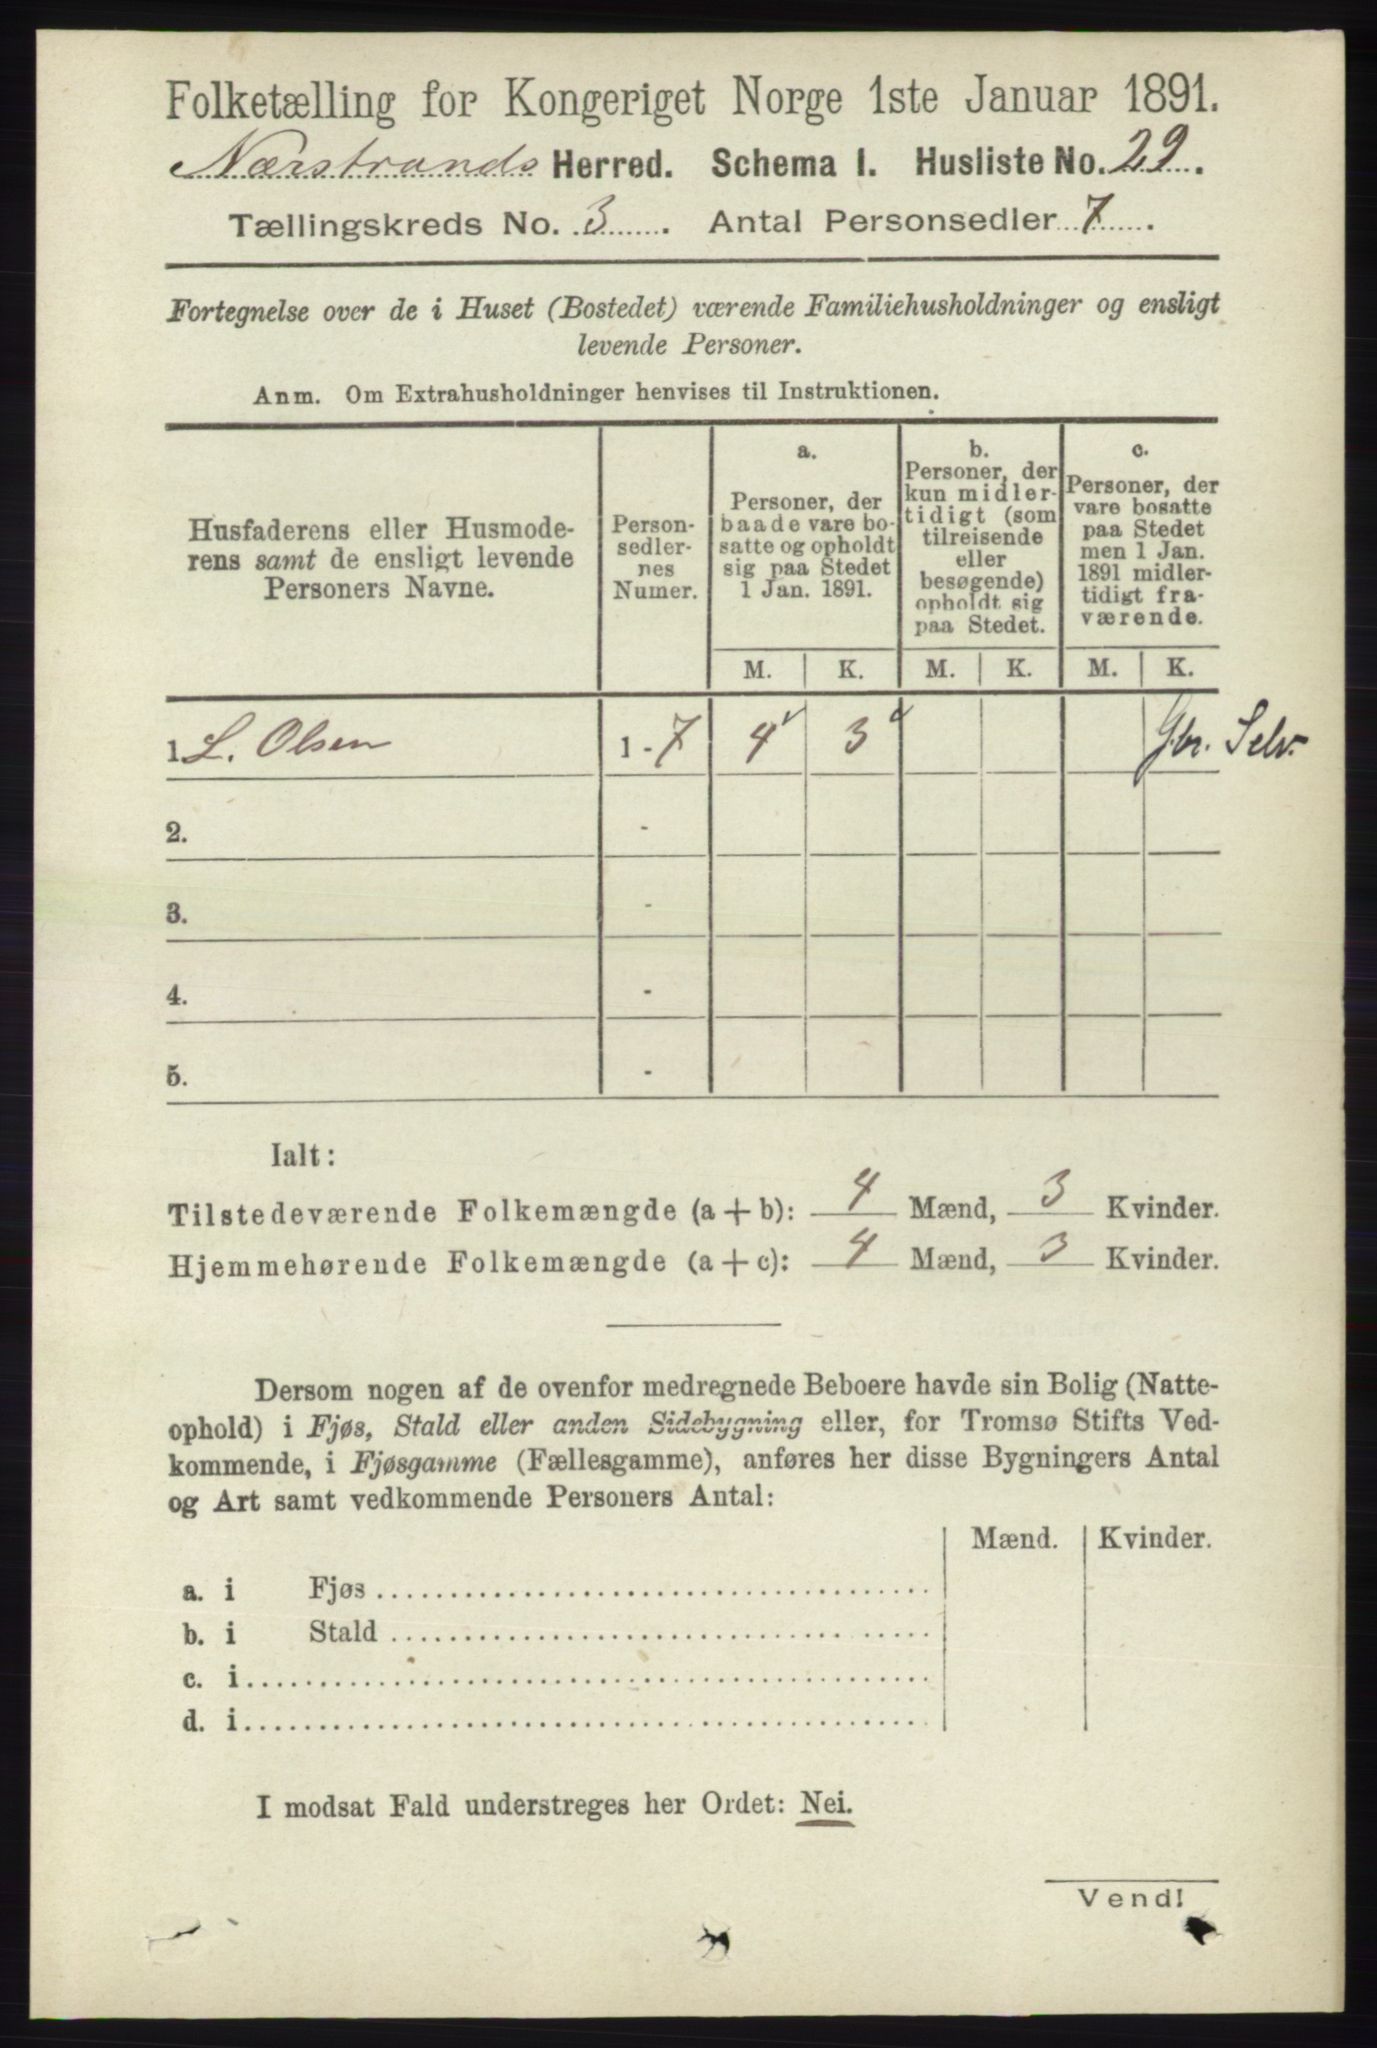 Folketælling for Kongeriget Norge 1ste Januar 1891.
Nærstrands Herred. Schema I. Husliste No. 29.
Tællingskreds No. 3. Antal Personsedler 7.
Fortegnelse over de i Huset (Bostedet) værende Familiehusholdninger og ensligt
levende Personer.
Anm. Om Extrahusholdninger henvises til Instruktionen.
Husfaderens eller Husmode-
rens samt de ensligt levende
Personers Navne.
Person-
sedler-
nes
Numer.
a.
Personer, der
baade vare bo-
satte og opholdt
sig paa Stedet
1 Jan. 1891.
b.
Personer, der
kun midler-
tidigt (som
tilreisende
eller
besøgende)
opholdt sig
paa Stedet.
c.
Personer, der
vare bosatte
paa Stedet
men 1 Jan.
1891 midler-
tidigt fra-
værende.
M. K. M. K. M. K.
1. L. Olsen 1 - 7 4 3 Gbr. Selv.
2. -
3. -
4. -
5. -
Ialt:
Tilstedeværende Folkemængde (a + b): 4 Mænd, 3 Kvinder.
Hjemmehørende Folkemængde (a + c): 4 Mænd, 3 Kvinder.
Dersom nogen af de ovenfor medregnede Beboere havde sin Bolig (Natte-
ophold) i Fjøs, Stald eller anden Sidebygning eller, for Tromsø Stifts Ved-
kommende, i Fjøsgamme (Fællesgamme), anføres her disse Bygningers Antal
og Art samt vedkommende Personers Antal:
Mænd. Kvinder.
a. i Fjøs
b. i Stald
c. i
d. i
I modsat Fald understreges her Ordet: Nei.
Vend!